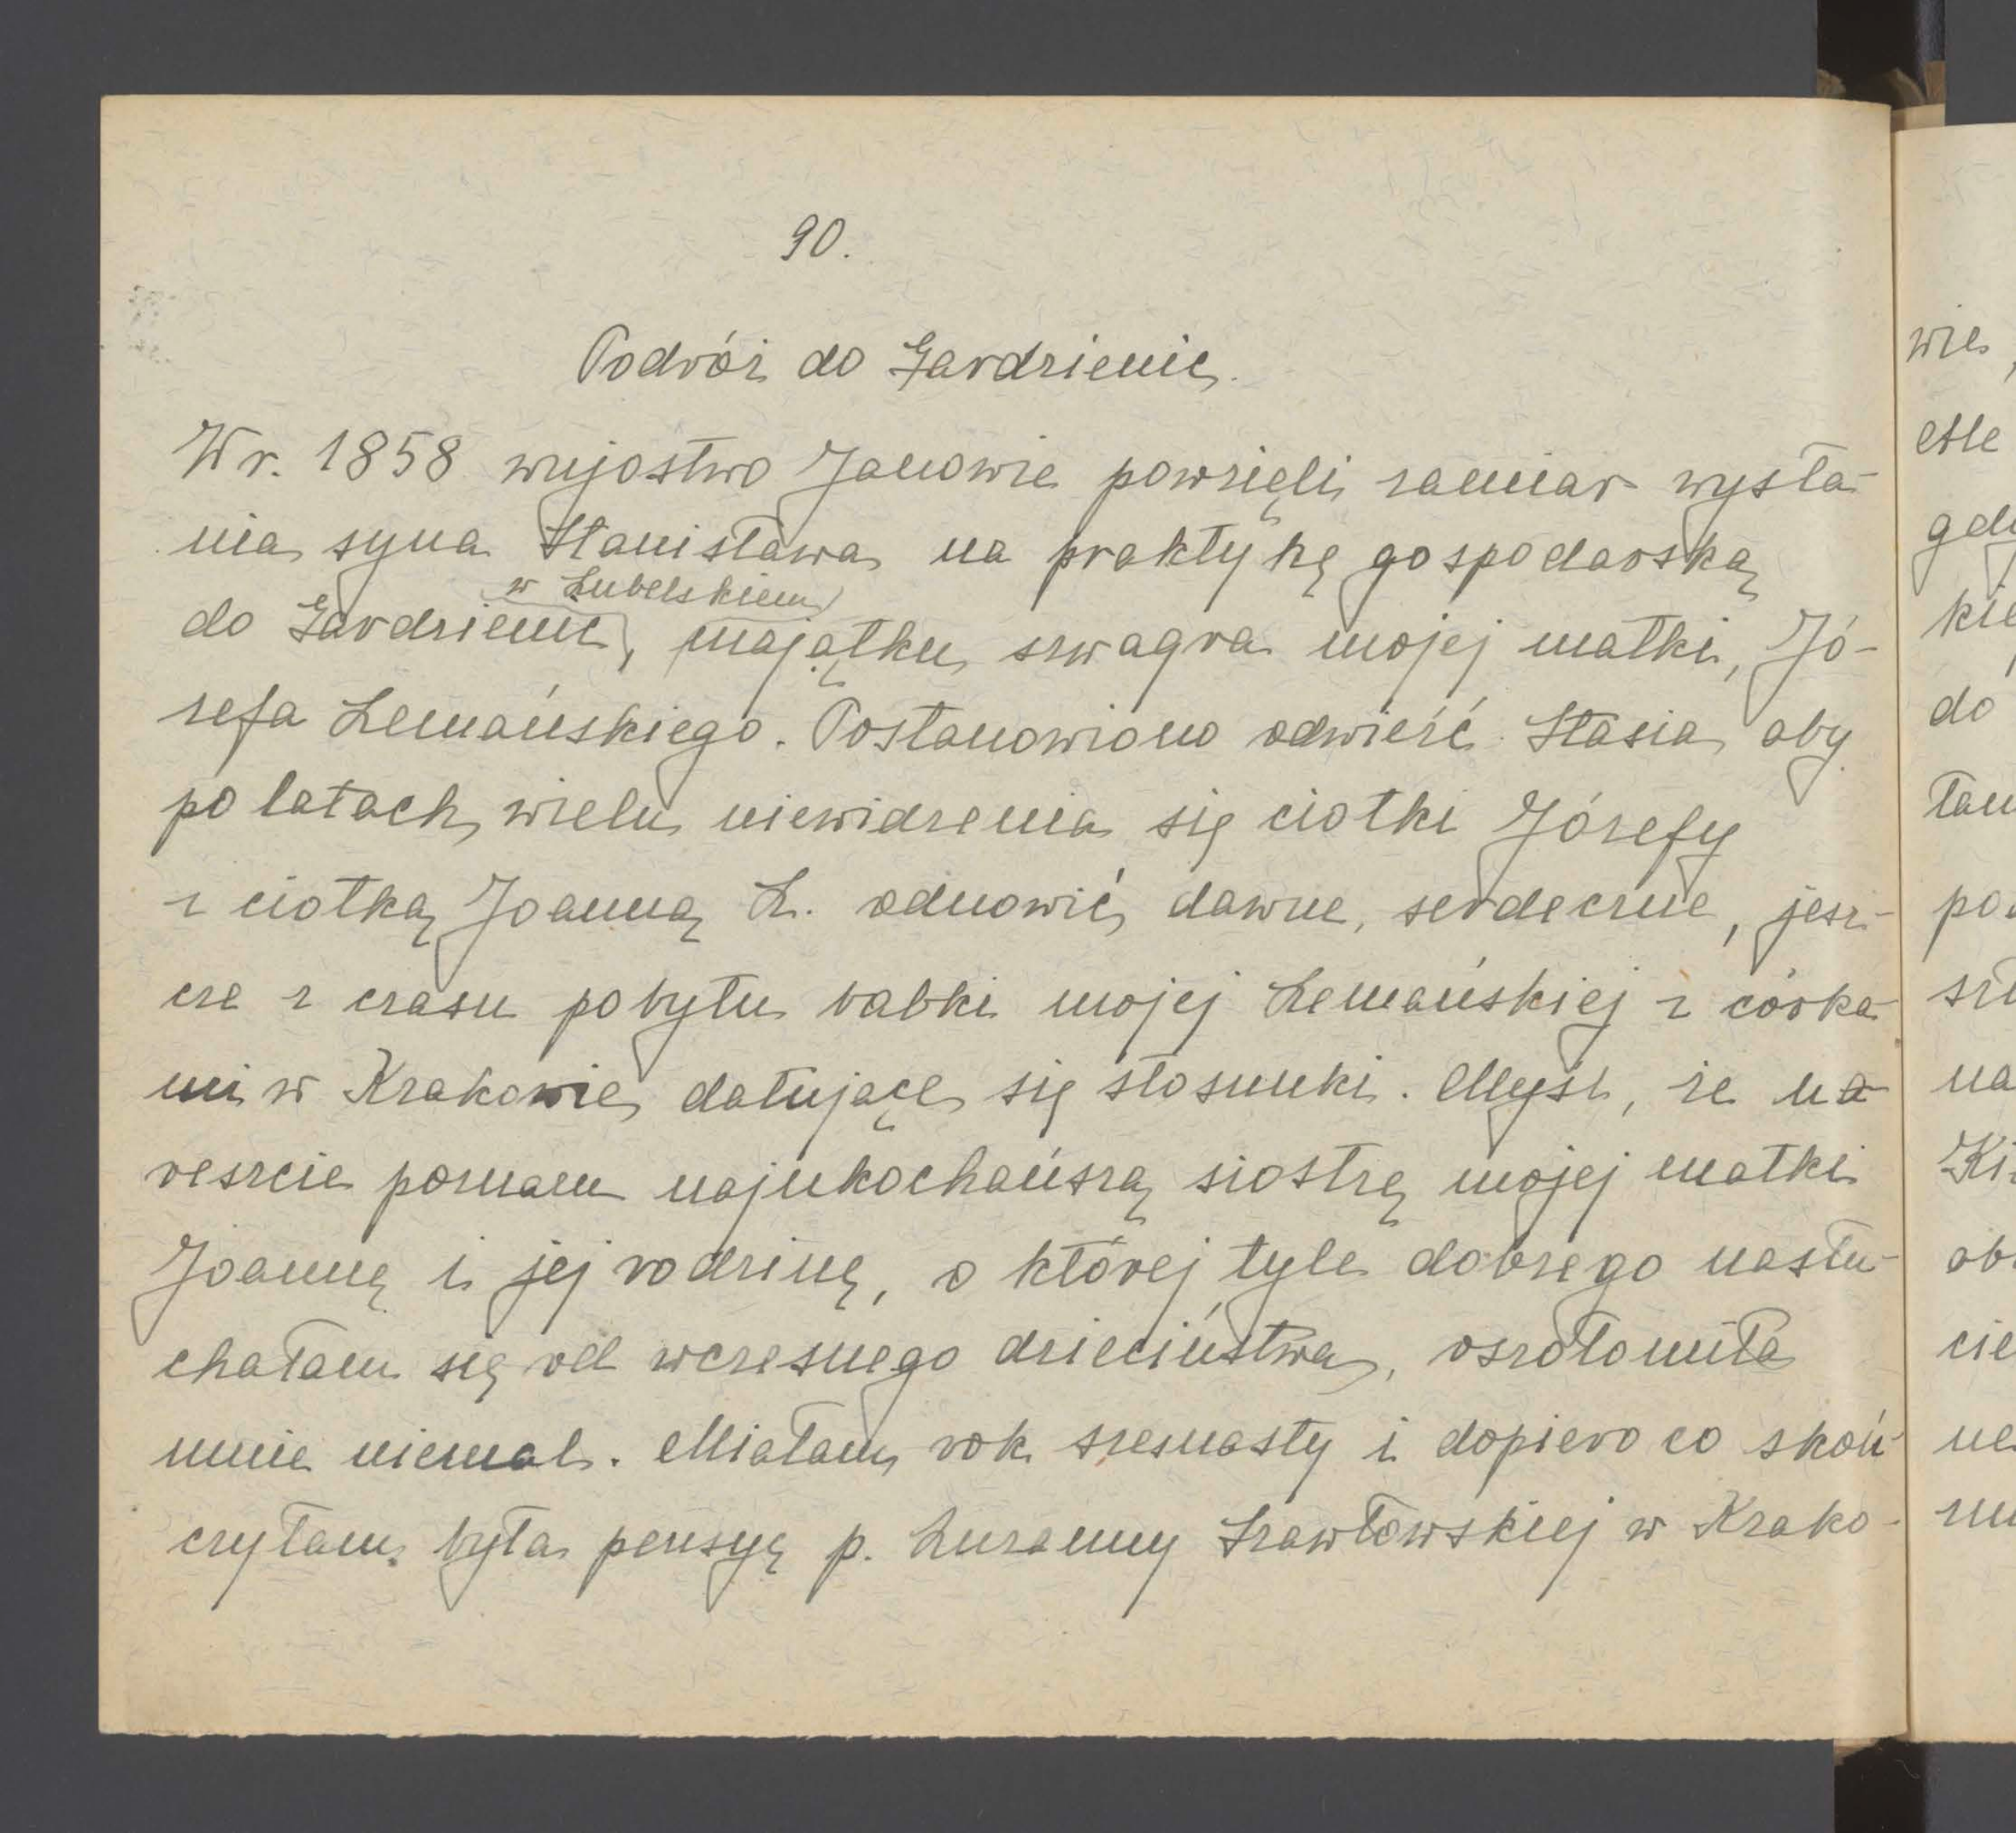 90.
Podróż do Gardzienic.
W r. 1858 wujostwo Janowie powzięli zamiar wysła-
nia syna Stanisława na praktykę gospodarską
w Lubelskiem
do Gardzienic, majątku szwagra mojej matki, Jó-
zefa Lemańskiego. Postanowiono odwieść Stasia, aby
po latach wielu niewidzenia się ciotki Józefy
z ciotką Joanną L. odnowić dawne, serdeczne, jesz-
cze z czasu pobytu babki mojej Lemańskiej z córka-
mi w Krakowie datujące się stosunki. Myśl, że na-
reszcie poznam najukochańszą siostrę mojej matki
Joannę i jej rodzinę, o której tyle dobrego nasłu-
chałam się od wczesnego dzieciństwa, oszołomiła
mnie niemal. Miałam rok szesnasty i dopiero co skoń-
czyłam była pensyę p. Zuzanny Szawłowskiej w Krako-
wie,
do